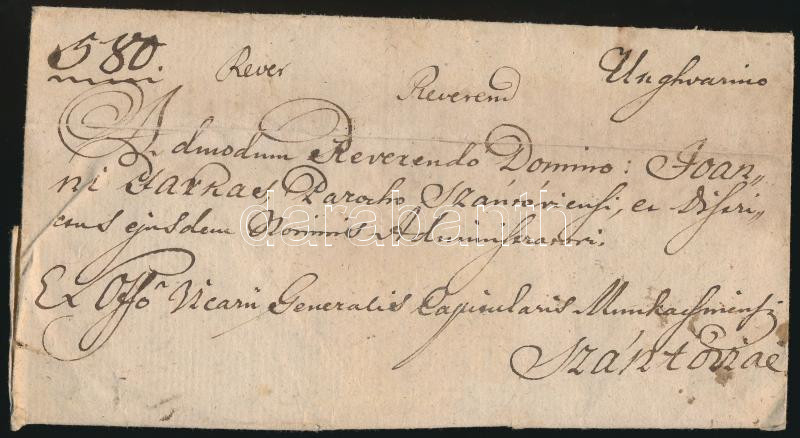 580. Rever Reverend Unghvarino
Admodum Reverendo Domino: Joan„
ni Parocho Szántoviensi, et Distri„
ctus ejusdem Nominis Administratori.
Ex Offo Vicarii Generalis Capitularis Munkacsiensis
Szántóviae
darabanth